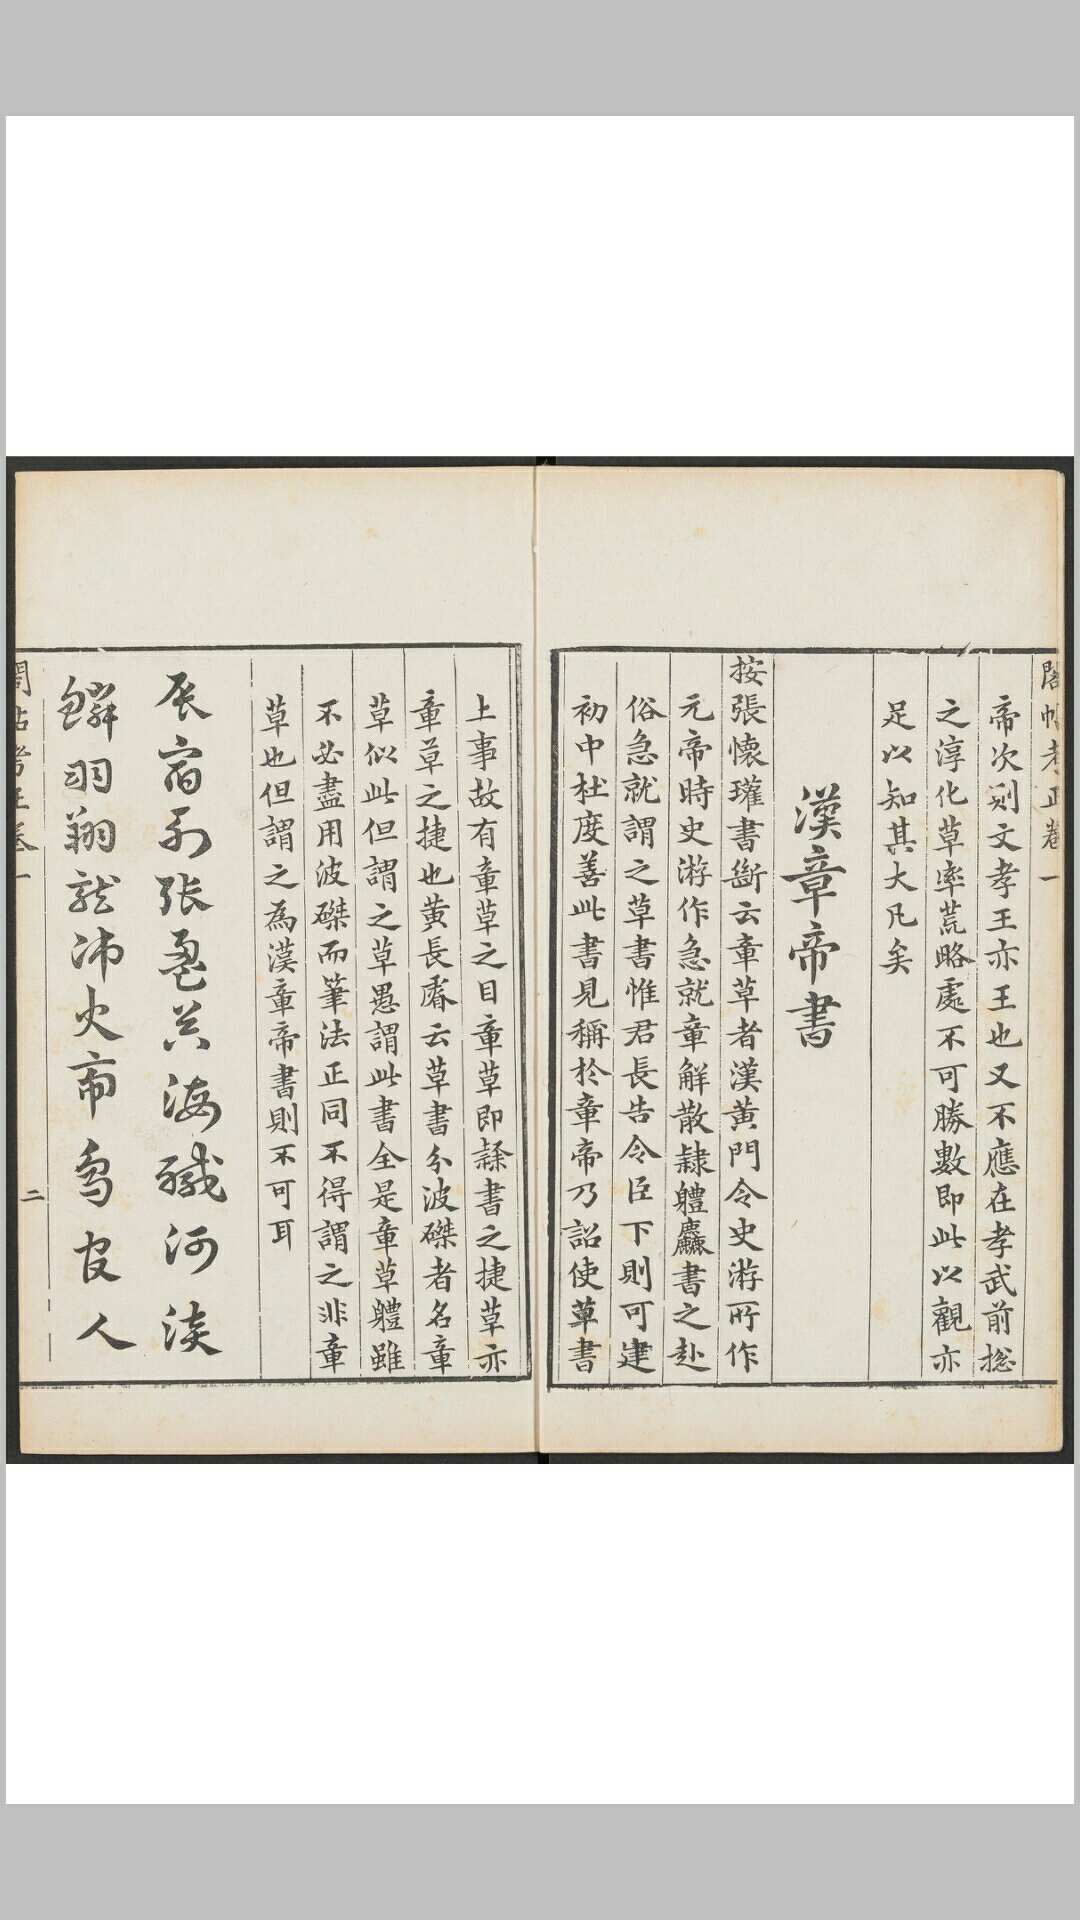 閣帖考正卷一
帝次則文孝王亦王也又不應在孝武前揔
之淳化草率荒略處不可勝數即此以觀亦
足以知其大凡矣
漢章帝書
按張懷瓘書斷云章草者漢黃門令史游所作
元帝時史游作急就章解散隸軆麤書之赴
俗急就謂之草書惟君長告令臣下則可建
初中杜度善此書見稱於章帝乃詔使草書
上事故有章草之目章草即隸書之捷草亦
章草之捷也黃長睿云草書分波磔者名章
草似此但謂之草愚謂此書全是章草軆雖
不必盡用波磔而筆法正同不得謂之非章
草也但謂之為漢章帝書則不可耳
辰宿列張盈昃海醎河淡
鱗羽翔龍師火帝鳥官人
閣帖考正卷一
二